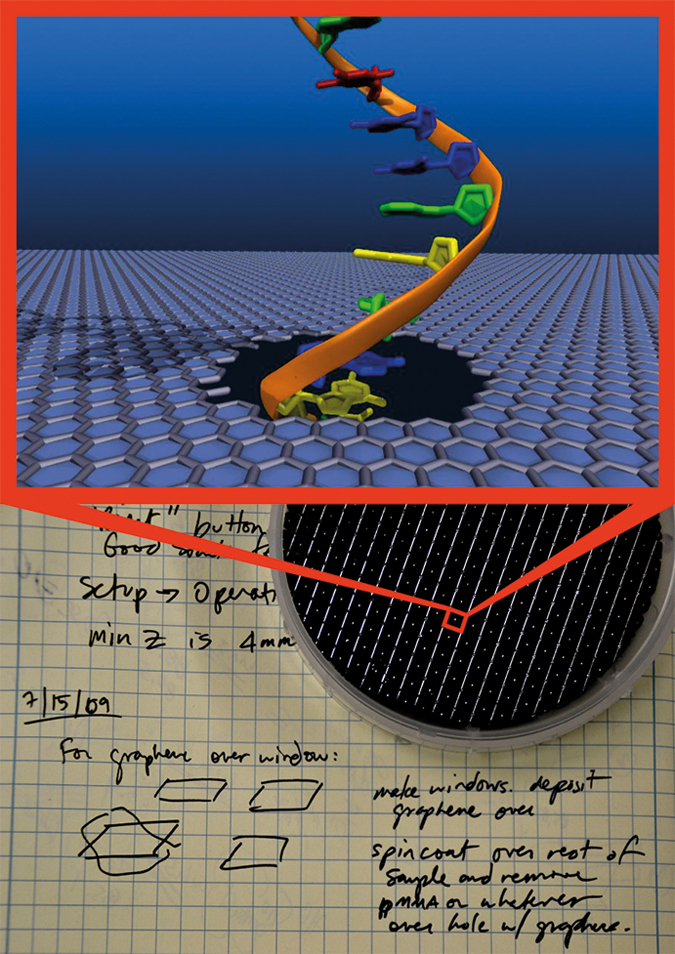 " button
Good
Setup → Operati
min Z is 4mm
7/15/09
For graphene over window:
make windows. deposit
graphene over
spincoat over rest of
sample and remove
PMMA or whatever
over hole w/ graphene.